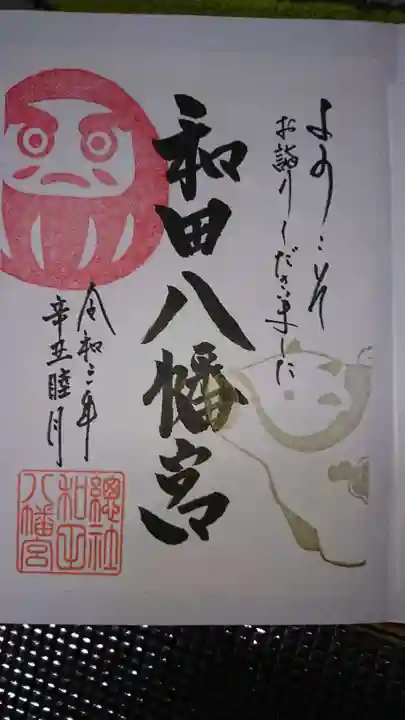 ようこそ
お詣り下さいました
和田八幡宮
令和三年
辛丑睦月
總社
和田
八幡宮